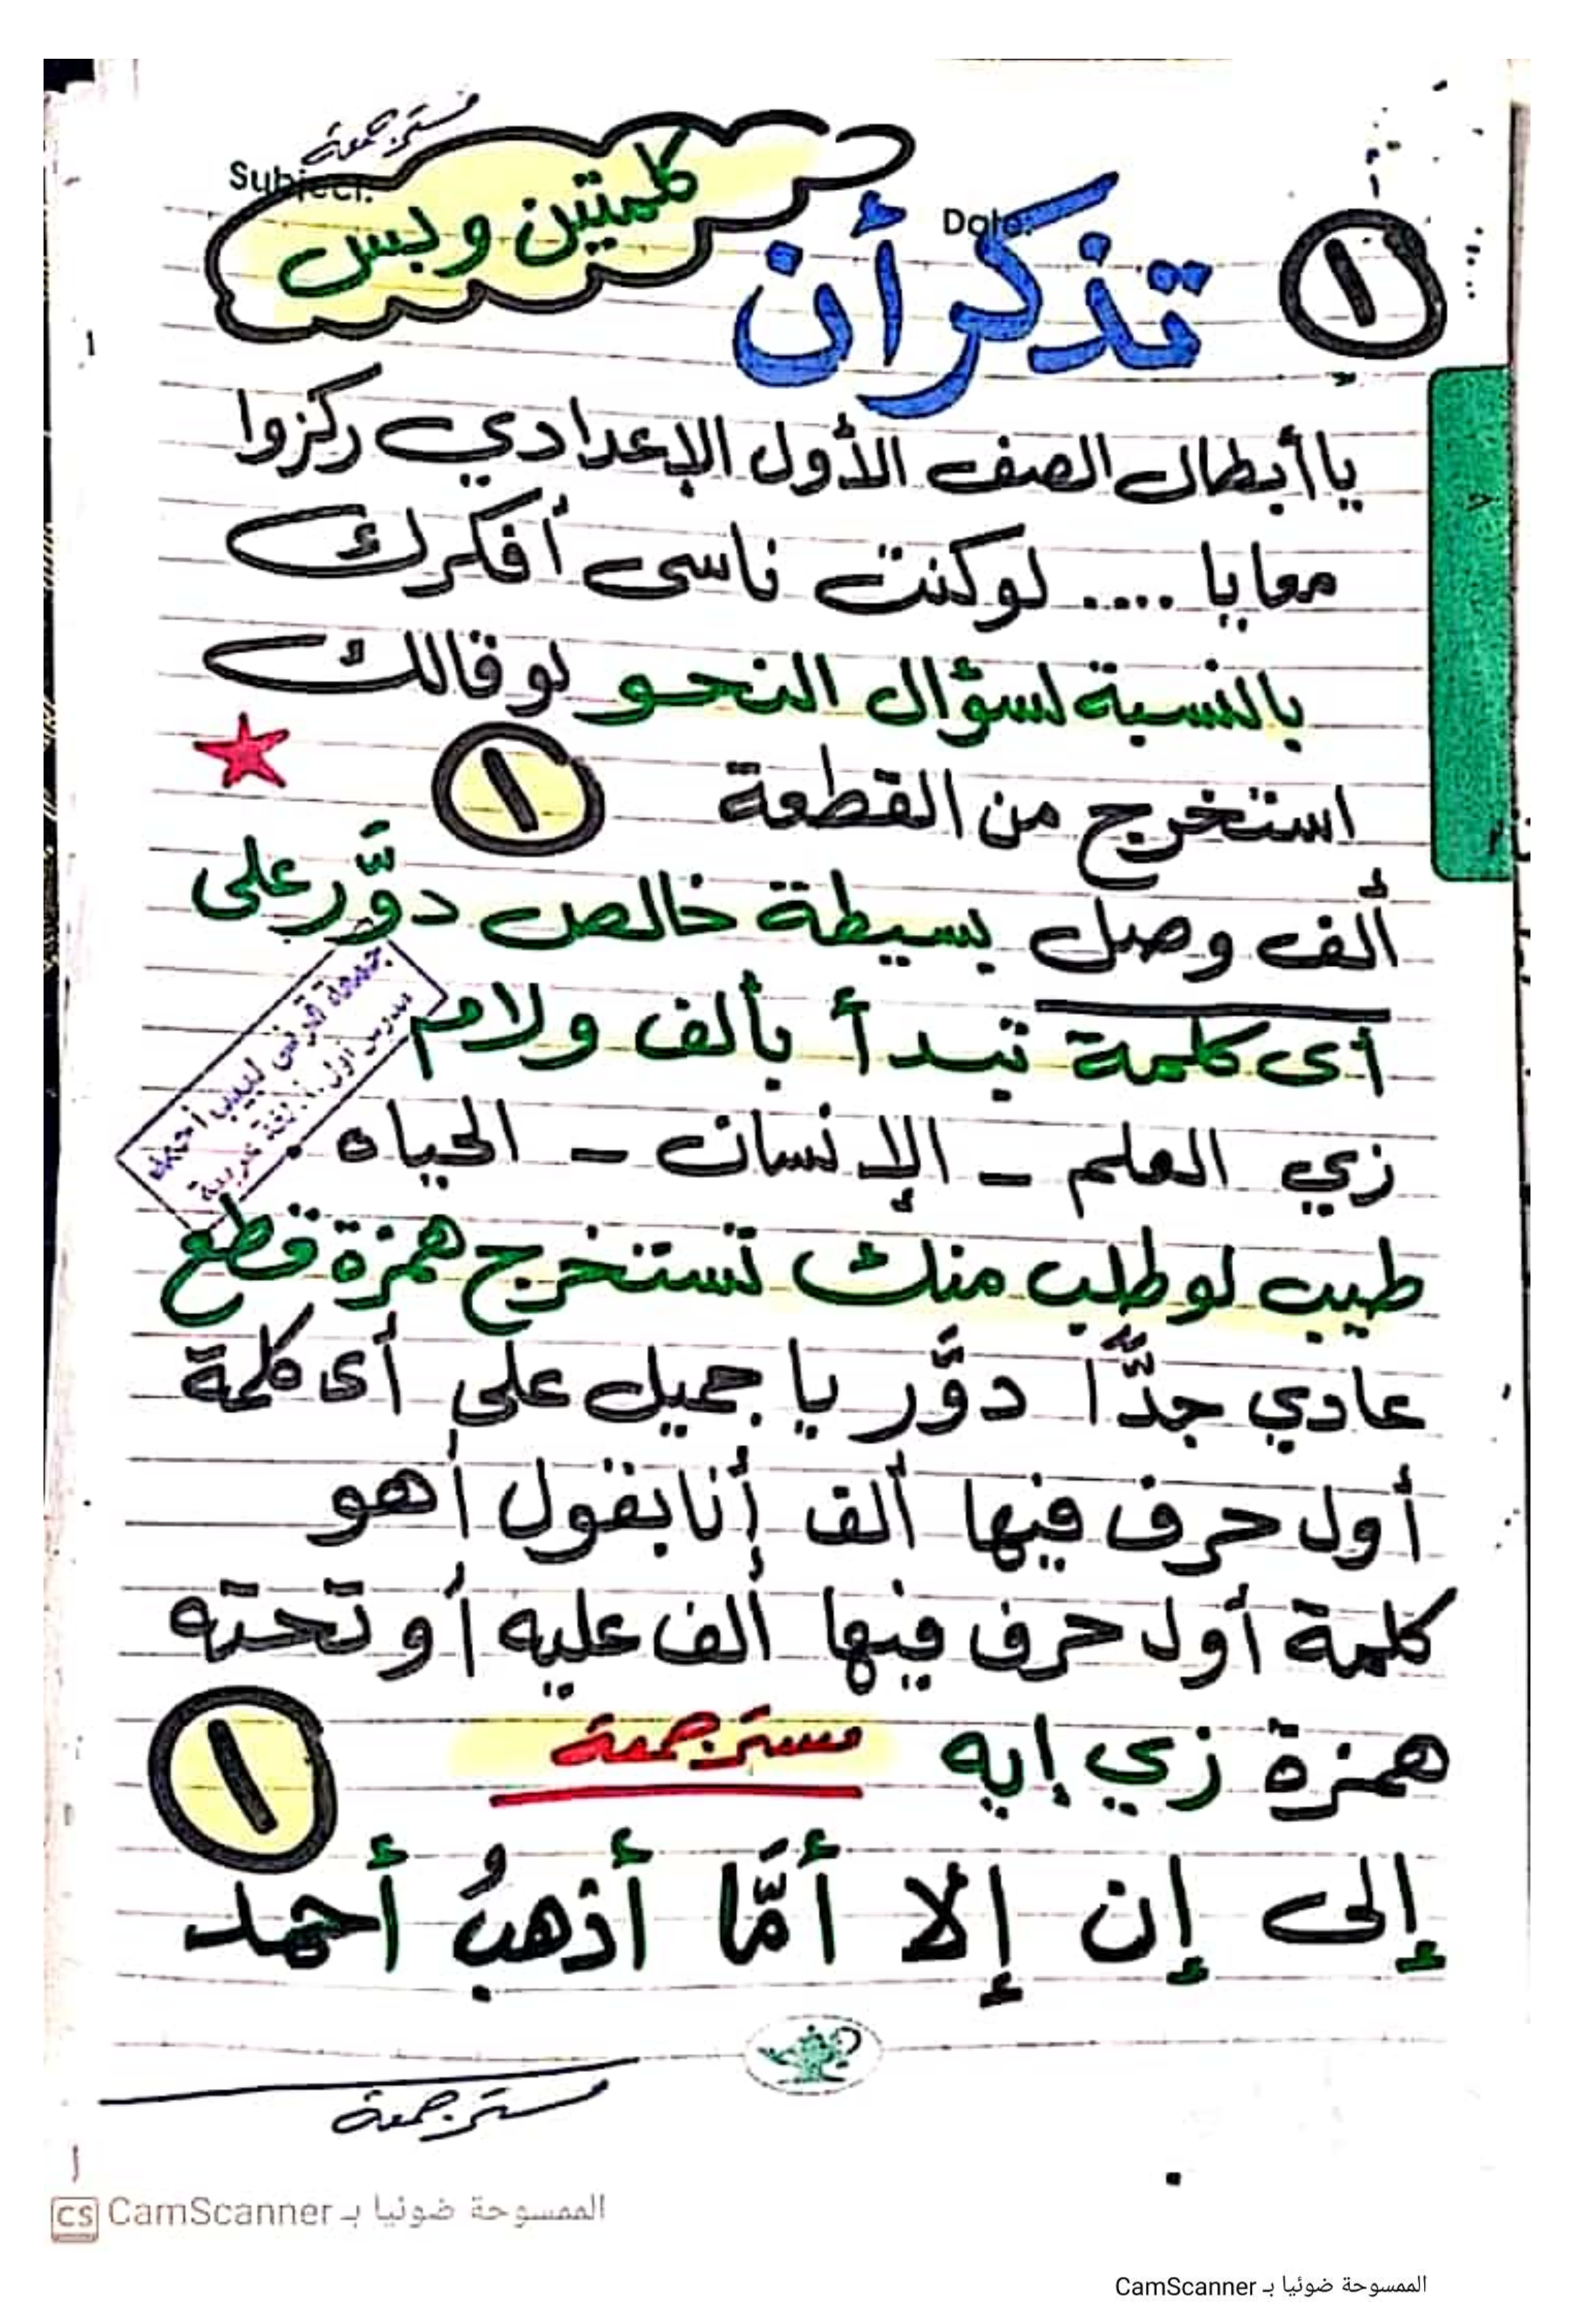 مستر جمعة
Subject:
كلمتين وبس
Date:
١
تذكر أن
يا أبطال الصف الأول الإعدادي ركزوا
معايا .... لو كنت ناسى أفكرك
بالنسبة لسؤال النحو لو قالك
استخرج من القطعة ١
ألف وصل بسيطة خالص دوَّر على
أى كلمة تبدأ بألف ولام
جمعة قرنى لبيب أحمد
مدرس أول أ. لغة عربية
زي العلم - الإنسان - الحياه .
طيب لو طلب منك تستخرج همزة قطع
عادي جدًّا دوَّر يا جميل على أى كلمة
أول حرف فيها ألف أنا بقول أهو
كلمة أول حرف فيها ألف عليه أو تحته
همزة زي إيه مستر جمعة
١
إلى إن إلا أمَّا أذهبُ أحمد
مستر جمعة
١
CS CamScanner الممسوحة ضوئيا بـ
الممسوحة ضوئيا بـ CamScanner